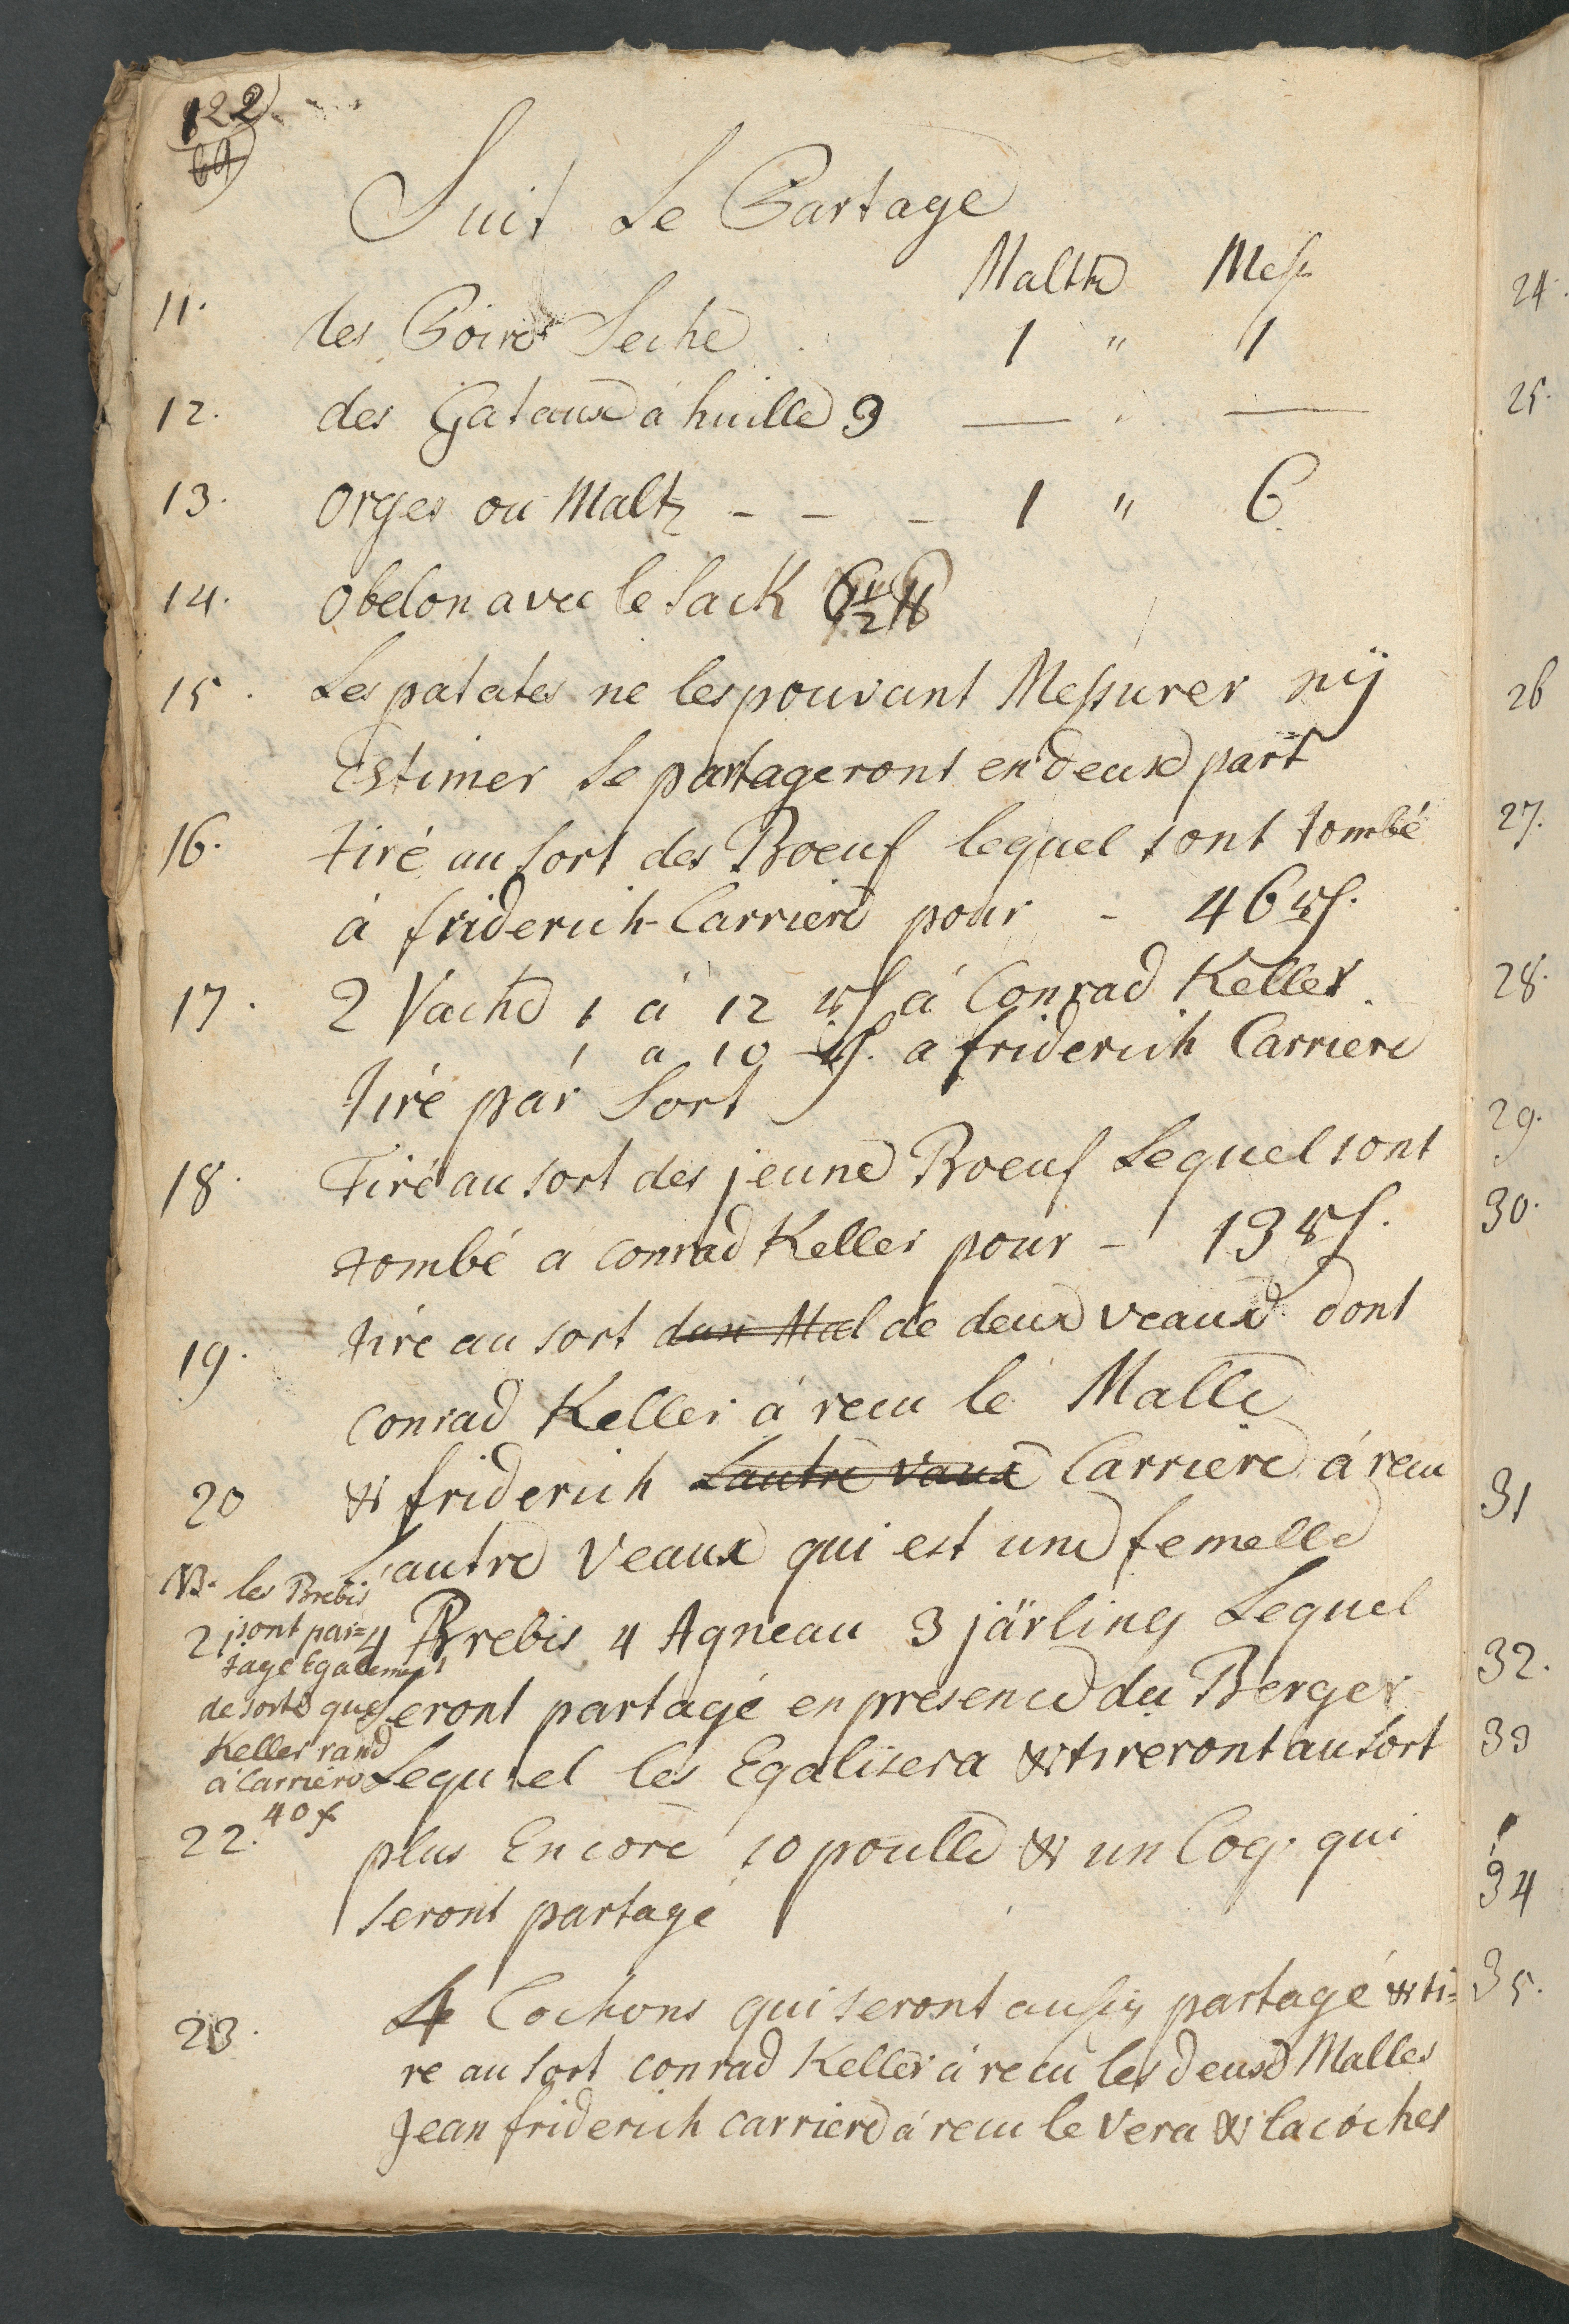 122
64
Suit Le Partage
Maltr Mess
11. des Poires Seche 1 " 1
12. des Gateaux á huille 9 — " —
13. Orges ou Maltz - - - 1 " 6
14. Obelon avec le Sack 6 1/2 ℔
15. Les patates ne les pouvant Messurer nÿ
Estimer Se partageront en deux part
16. tiré au Sort des Boeuf lequel sont tombé
á friderich-Carriere pour - 46 rf.
17. 2 Vache 1 á 12 rf á Conrad Keller
1 a 10 rf. a friderich Carriere
tiré par Sort
18. Tiré au sort des jeune Boeuf Lequel sont
tombé a conrad Keller pour - 13 rf.
19. tiré au sort de deux veaux dont
conrad Keller á recu le Malle
20 & friderich Lautre vaux Carriere á recu
L'autre Veaux qui est une femelle
NB. les Brebis
sont par=
tage Egalement
de sorte que
Keller rand
á Carriere
40 x
21. 4 Brebis 4 Agneau 3 järling Lequel
Seront partagé en presence du Berger
Lequel les Egalisera & tireront au Sort
22. plus Encore 10 poulle & un Coq. qui
seront partagé
23. 4 Cochons qui seront aussy partagé & ti=
re au sort conrad Keller á recu les deux Malles
Jean friderich carriere á recu le Vera & la coches
24.
25.
26
27.
28.
29.
30.
31
32.
33
34
35.